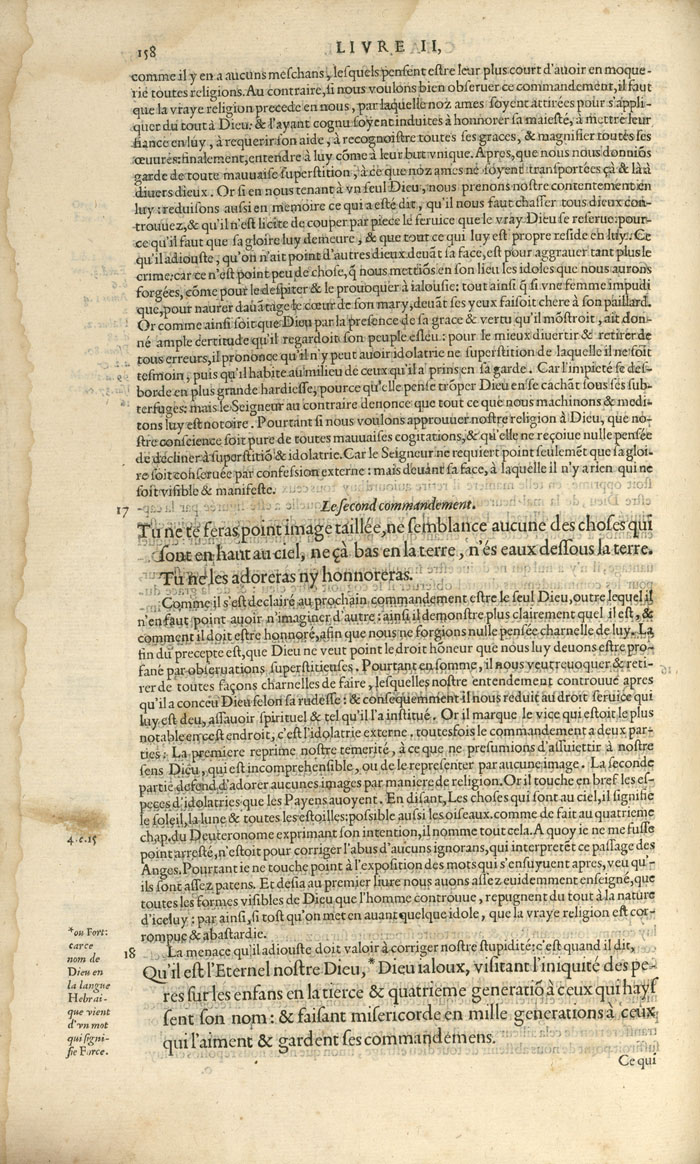 158
LIVRE II,
comme il y en a aucuns meschans, lesquels pensent estre leur plus court d'auoir en moque-
rie toutes religions. Au contraire, si nous voulons bien obseruer ce commandement, il faut
que la vraye religion precede en nous, par laquelle noz ames soyent attirées pour s'appli-
quer du tout à Dieu: & l'ayant cognu soyent induites à honnorer sa maiesté, à mettre leur
fiance en luy, à requerir son aide, à recognoistre toutes ses graces, & magnifier toutes ses
œuures: finalement, entendre à luy cōme à leur but vnique. Apres, que nous nous donniōs
garde de toute mauuaise superstition, à ce que noz ames ne soyent transportées çà & là à
diuers dieux. Or si en nous tenant à vn seul Dieu, nous prenons nostre contentement en
luy: reduisons aussi en memoire ce qui a esté dit, qu'il nous faut chasser tous dieux con-
trouuez, & qu'il n'est licite de couper par piece le seruice que le vray Dieu se reserue: pour-
ce qu'il faut que sa gloire luy demeure, & que tout ce qui luy est propre reside en luy. Ce
qu'il adiouste, qu'on n'ait point d'autres dieux deuāt sa face, est pour aggrauer tant plus le
crime: car ce n'est point peu de chose, q̃ nous mettiōs en son lieu les idoles que nous aurons
forgées, cōme pour le despiter & le prouoquer à ialousie: tout ainsi q̃ si vne femme impudi
que, pour naurer dauātage le cœur de son mary, deuāt ses yeux faisoit chere à son paillard.
Or comme ainsi soit que Dieu par la presence de sa grace & vertu qu'il mōstroit, ait don-
né ample certitude qu'il regardoit son peuple esleu: pour le mieux diuertir & retirer de
tous erreurs, il prononce qu'il n'y peut auoir idolatrie ne superstition de laquelle il ne soit
tesmoin, puis qu'il habite au milieu de ceux qu'il a prins en sa garde. Car l'impieté se des-
borde en plus grande hardiesse, pource qu'elle pense trōper Dieu en se cachāt sous ses sub-
terfuges: mais le Seigneur au contraire denonce que tout ce que nous machinons & medi-
tons luy est notoire. Pourtant si nous voulons approuuer nostre religion à Dieu, que no-
stre conscience soit pure de toutes mauuaises cogitations, & qu'elle ne reçoiue nulle pensée
de decliner à superstitiō & idolatrie. Car le Seigneur ne requiert point seulemēt que sa gloi-
re soit conseruée par confession externe: mais deuant sa face, à laquelle il n'y a rien qui ne
soit visible & manifeste.
17 Le second commandement.
Tu ne te feras point image taillée, ne semblance aucune des choses qui
sont en haut au ciel, ne çà bas en la terre, n'és eaux dessous la terre.
Tu ne les adoreras ny honnoreras.
Comme il s'est declairé au prochain commandement estre le seul Dieu, outre lequel il
n'en faut point auoir n'imaginer d'autre: ainsi il demonstre plus clairement quel il est, &
comment il doit estre honnoré, afin que nous ne forgions nulle pensée charnelle de luy. La
fin du precepte est, que Dieu ne veut point le droit hōneur que nous luy deuons estre pro-
fané par obseruations superstitieuses. Pourtant en somme, il nous veut reuoquer & reti-
rer de toutes façons charnelles de faire, lesquelles nostre entendement controuue apres
qu'il a conceu Dieu selon sa rudesse: & consequemment il nous reduit au droit seruice qui
luy est deu, assauoir spirituel & tel qu'il l'a institué. Or il marque le vice qui estoit le plus
notable en cest endroit, c'est l'idolatrie externe. toutesfois le commandement a deux par-
ties: La premiere reprime nostre temerité, à ce que ne presumions d'assuiettir à nostre
sens Dieu, qui est incomprehensible, ou de le representer par aucune image. La seconde
partie defend d'adorer aucunes images par maniere de religion. Or il touche en bref les es-
peces d'idolatries que les Payens auoyent. En disant, Les choses qui sont au ciel, il signifie
le soleil, la lune & toutes les estoilles: possible aussi les oiseaux. comme de fait au quatrieme
4.c.15
chap. du Deuteronome exprimant son intention, il nomme tout cela. A quoy ie ne me fusse
point arresté, n'estoit pour corriger l'abus d'aucuns ignorans, qui interpretēt ce passage des
Anges. Pourtant ie ne touche point à l'exposition des mots qui s'ensuyuent apres, veu qu'-
ils sont assez patens. Et desia au premier liure nous auons assez euidemment enseigné, que
toutes les formes visibles de Dieu que l'homme controuue, repugnent du tout à la nature
d'iceluy: par ainsi, si tost qu'on met en auant quelque idole, que la vraye religion est cor-
rompue & abastardie.
18 La menace qu'il adiouste doit valoir à corriger nostre stupidité: c'est quand il dit,
Qu'il est l'Eternel nostre Dieu, * Dieu ialoux, visitant l'iniquité des pe-
res sur les enfans en la tierce & quatrieme generatiō à ceux qui hays
sent son nom: & faisant misericorde en mille generations à ceux
qui l'aiment & gardent ses commandemens.
*ou Fort:
car ce
nom de
Dieu en
la langue
Hebrai-
que vient
d'vn mot
qui signi-
fie Force.
Ce qui